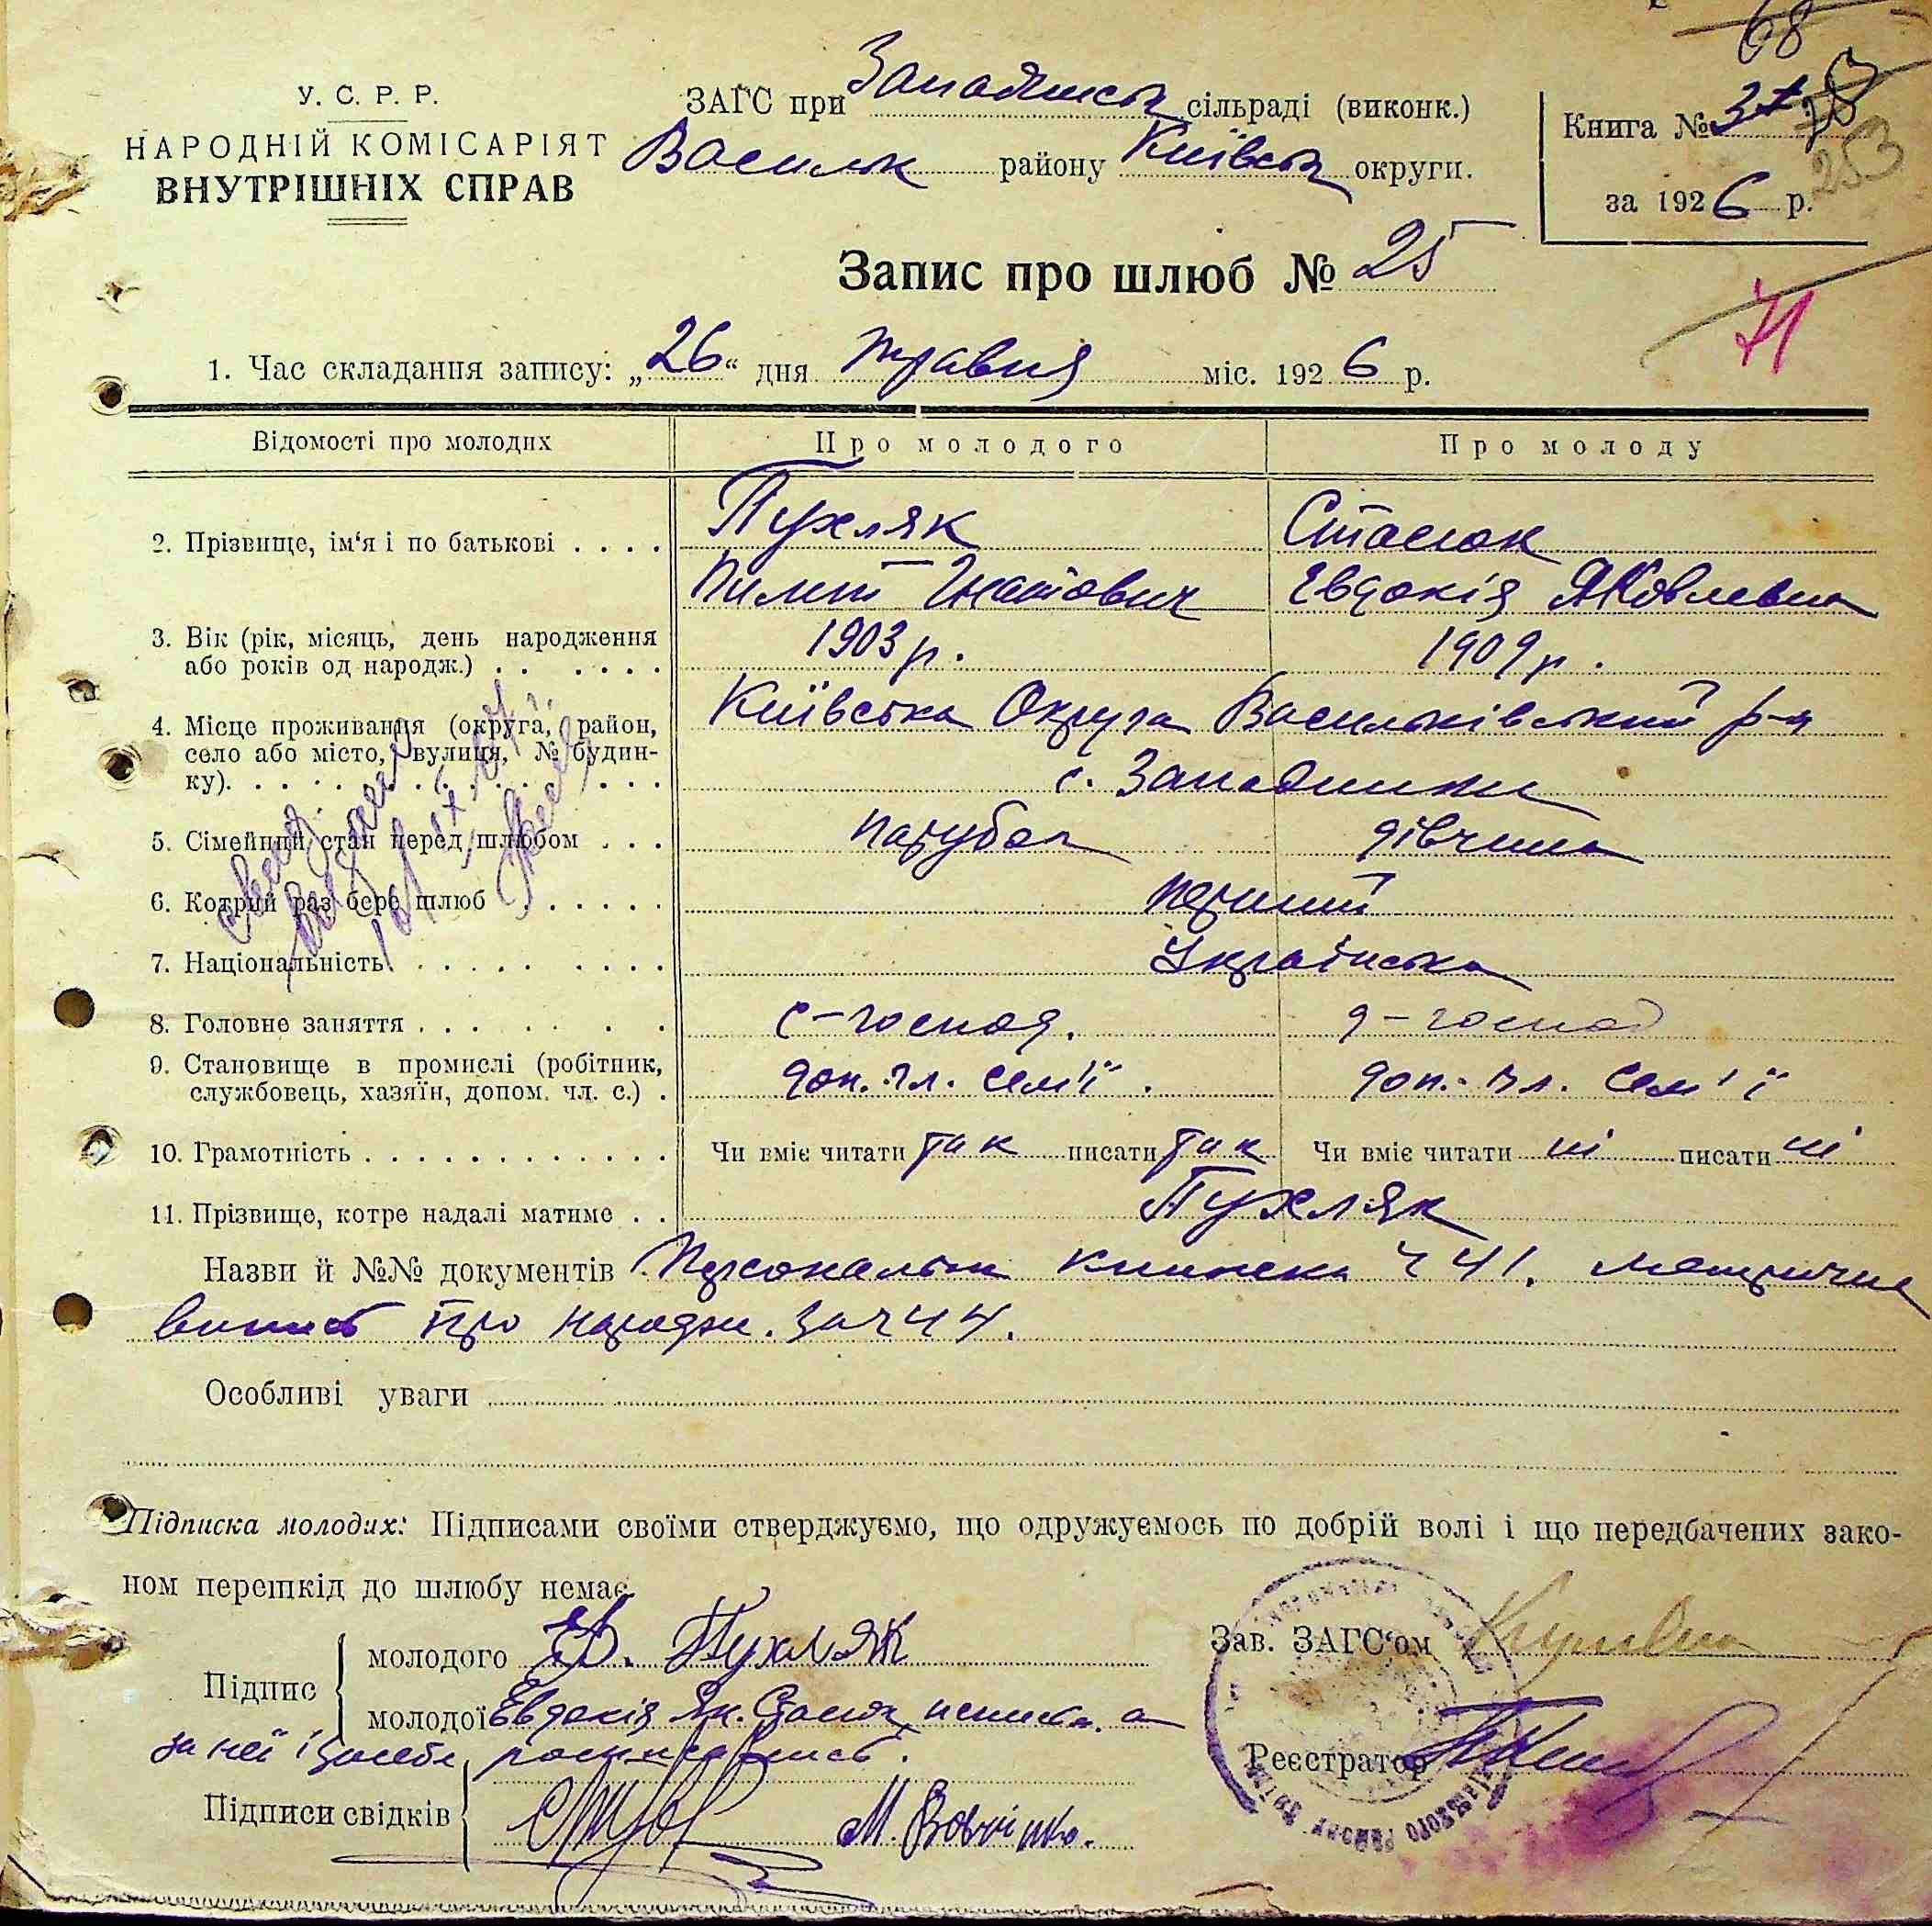 68
У. С. Р. Р.
НАРОДНІЙ КОМІСАРІЯТ
ВНУТРІШНІХ СПРАВ
ЗАГС при Западинськ сільраді (виконк.)
Васильк району Київськ округи.
Книга № 37
253
за 1926 р.
Запис про шлюб № 25
71
1. Час складання запису: „26“ дня травня міс. 1926 р.
Відомості про молодих
Про молодого
Про молоду
2. Прізвище, ім‘я і по батькові . . . .
Пухляк
Стасюк
Пилип Ігнатович
Евдокія Яковлевна
3. Вік (рік, місяць, день народження
або років од народж.) . . . . . .
1903 р.
1909 р.
4. Місце проживання (округа, район,
село або місто, вулиця, № будин-
ку). . . . . . . . . . . . . .
Київська Округа Васильківський р-н
с. Западинки
5. Сімейний стан перед шлюбом . . .
парубок
дівчина
6. Котрий раз бере шлюб . . . . . .
перший
7. Національність . . . . . . . . .
Українська
8. Головне заняття . . . . . . .
с-господ.
д-господ
9. Становище в промислі (робітник,
службовець, хазяїн, допом. чл. с.) .
доп. чл. сем'ї.
доп. чл. сем'ї
10. Грамотність . . . . . . . . . . . .
Чи вміє читати так писати так
Чи вміє читати ні писати ні
11. Прізвище, котре надалі матиме . .
Пухляк
Назви й №№ документів Персональн книжка ч 41. метрична
випись про народж. за ч 44.
Особливі уваги
Підписка молодих: Підписами своїми стверджуємо, що одружуємось по добрій волі і що передбачених зако-
ном перешкід до шлюбу немає
Підпис
молодого Пухляк
молодої Евдокія Як. Стасюк неписьм. а
за неї і за себе росписавсь.
Підписи свідків
М. Вовченко.
Зав. ЗАГС‘ом
Реєстратор